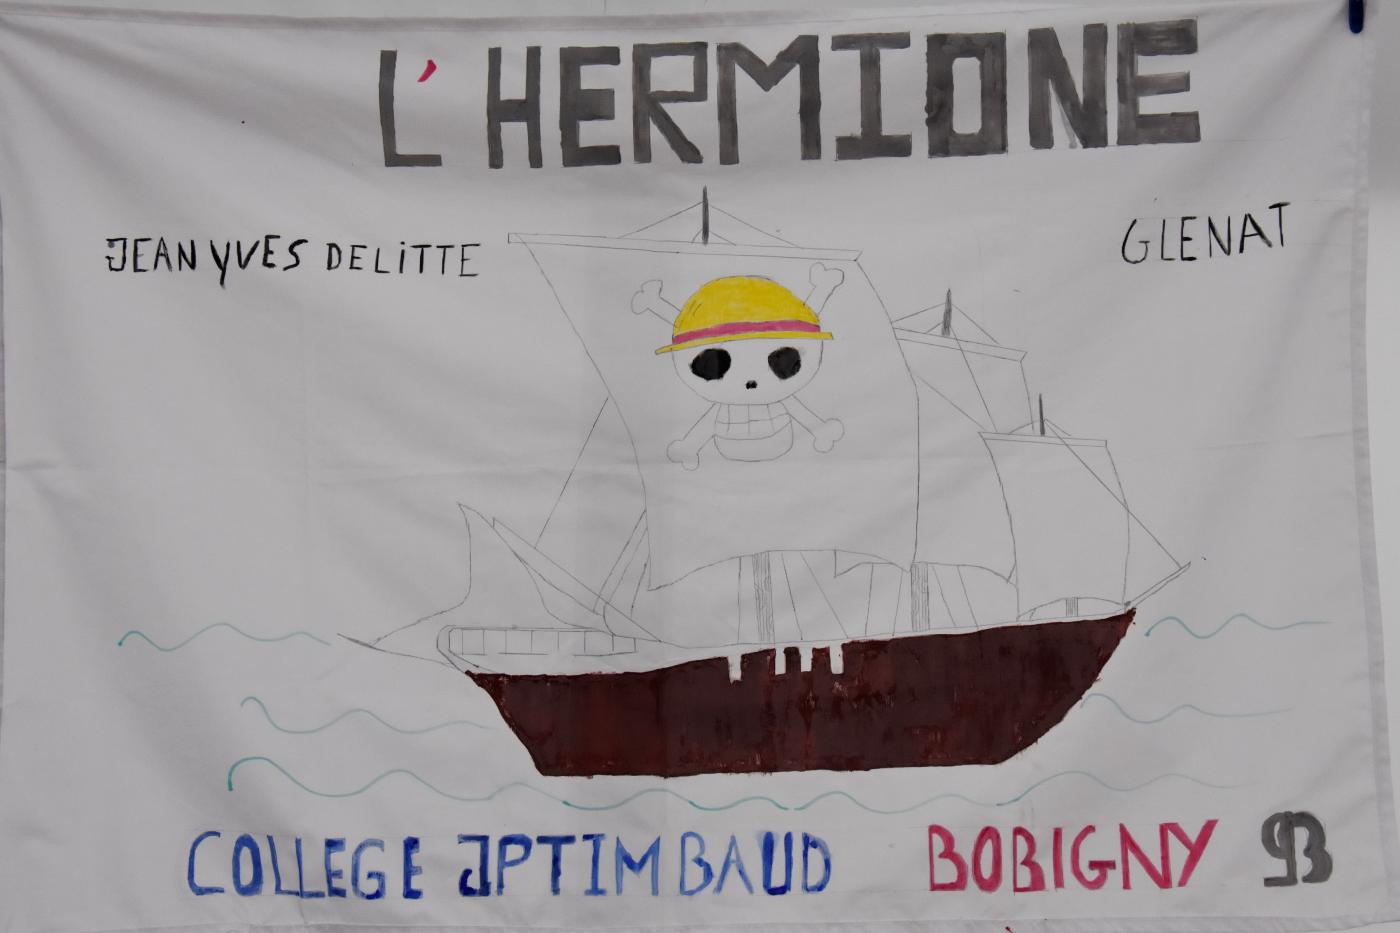 L'HERMIONE
JEAN YVES DELITTE
GLENAT
COLLEGE JPTIMBAUD BOBIGNY 93